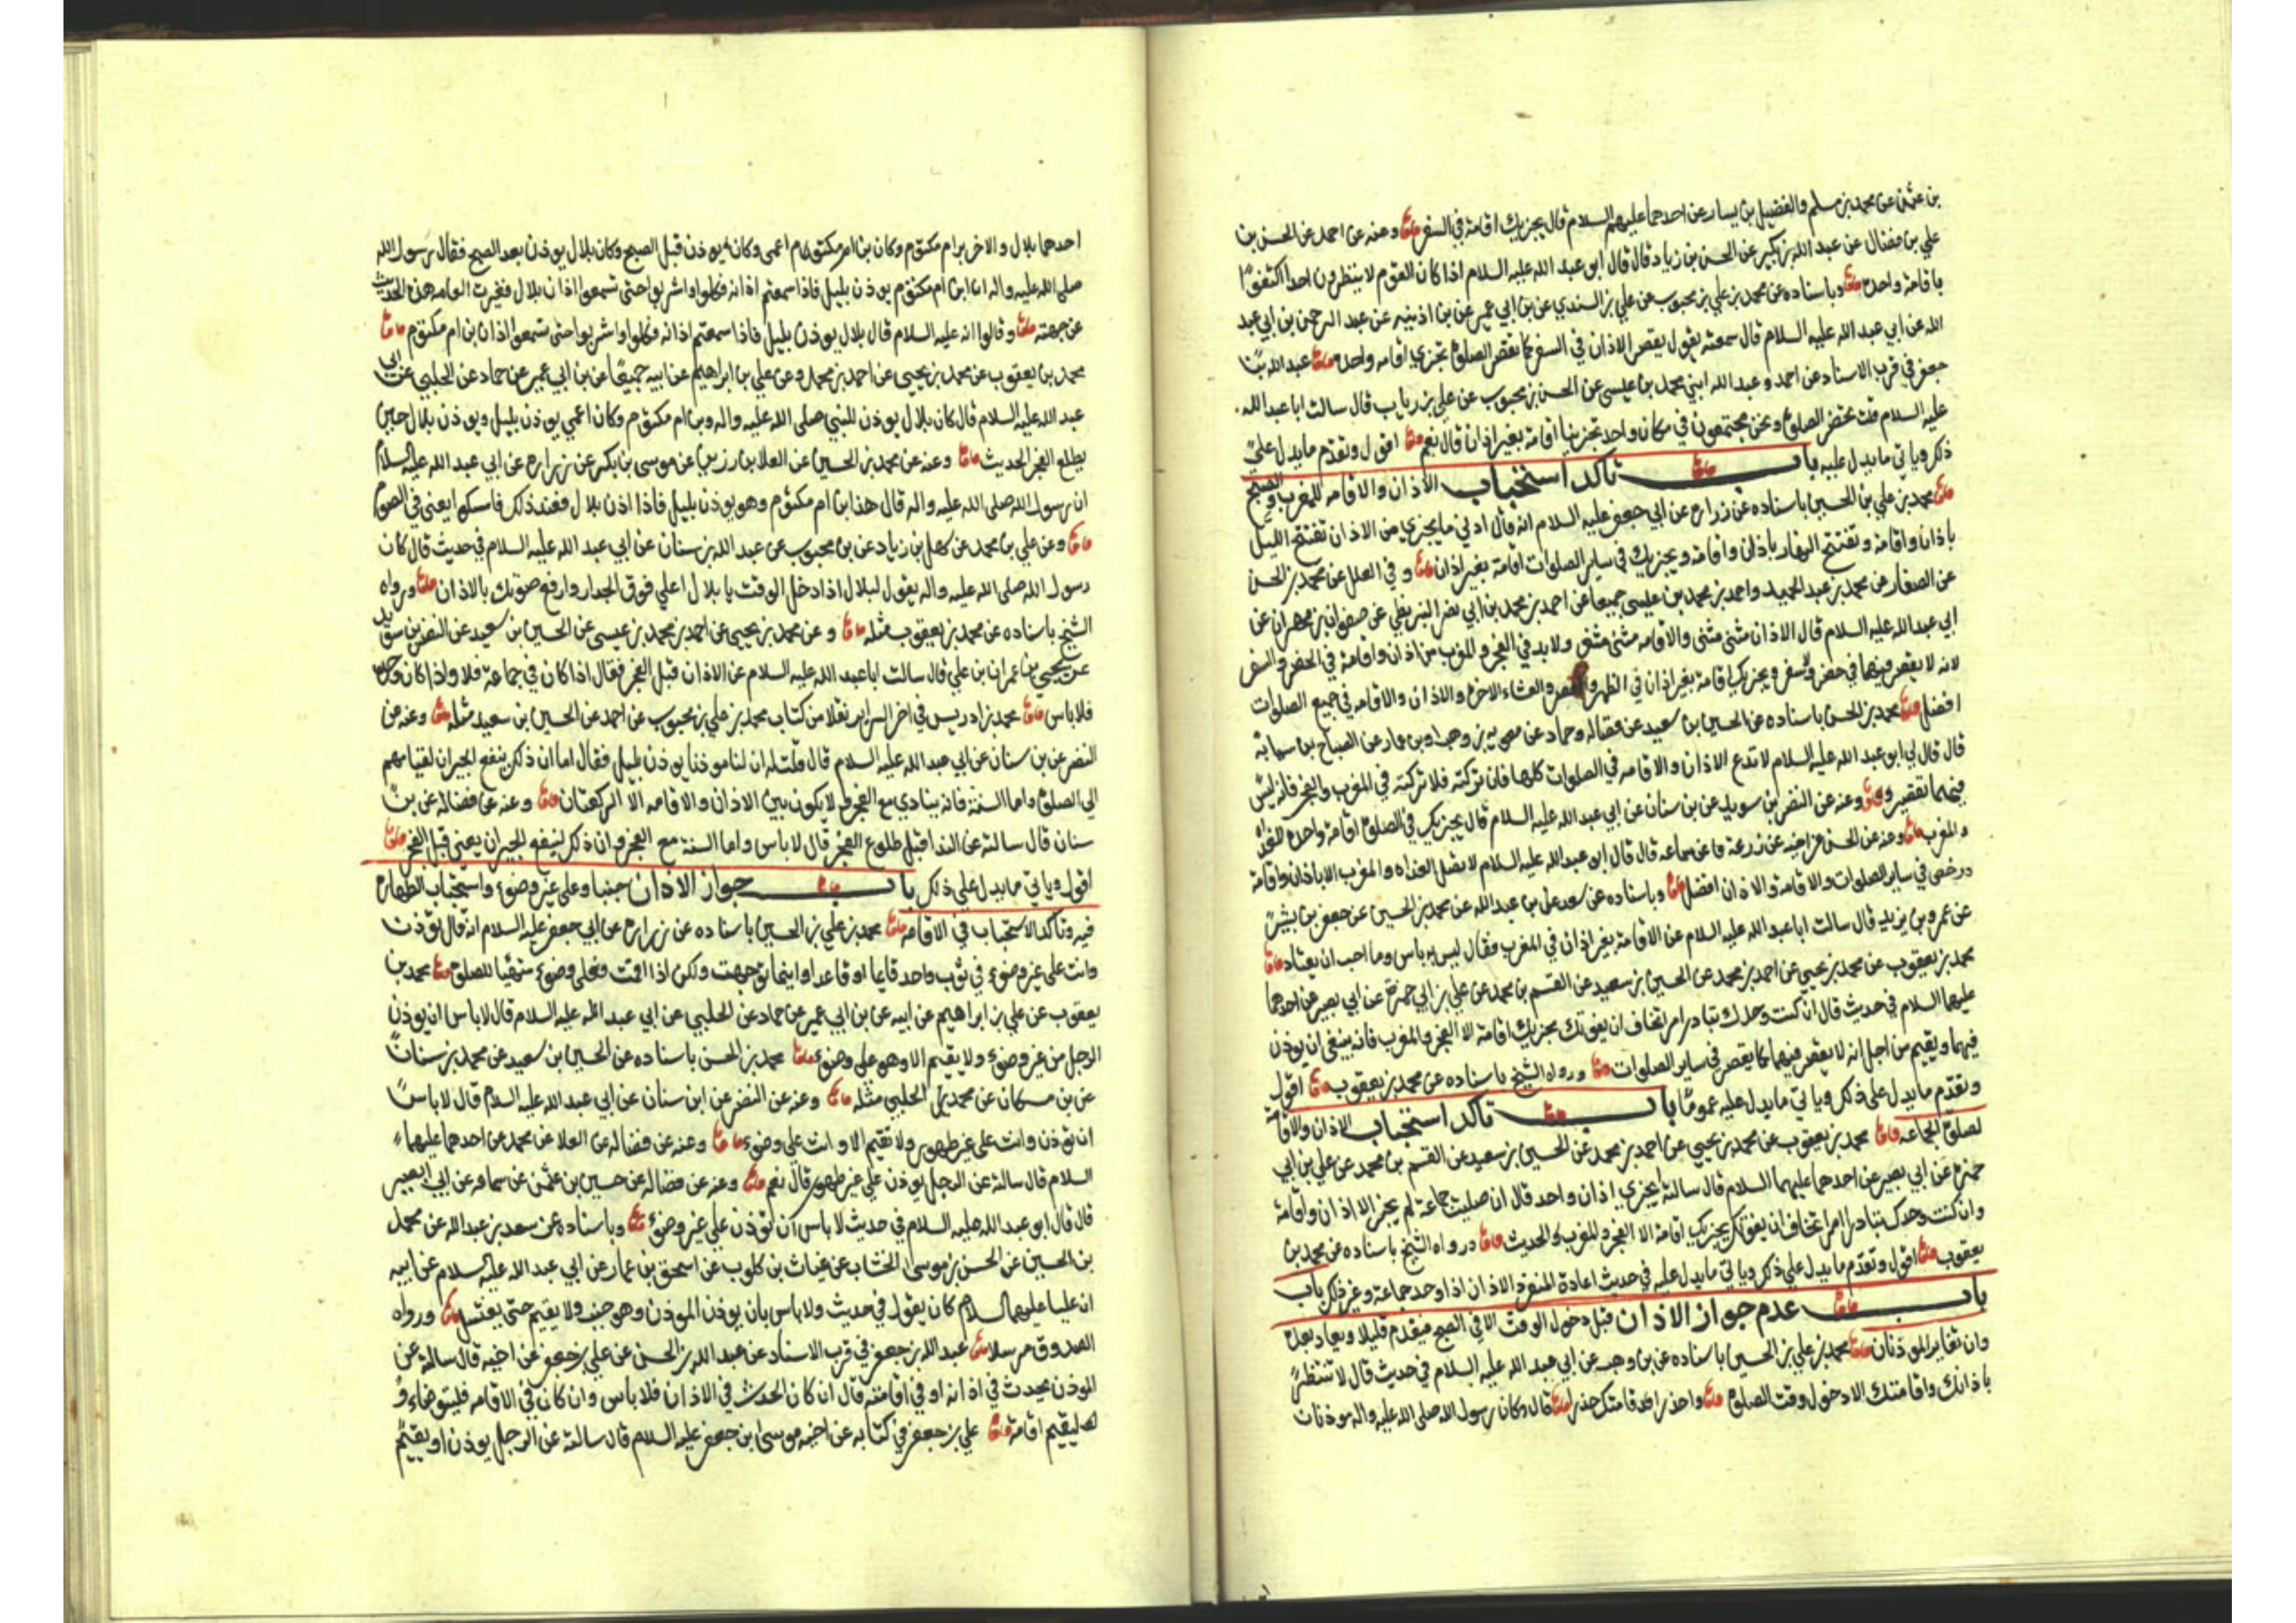 بن عثمن عن محمد بن مسلم والفضيل بن يسار عن احدهما عليهم السلام قال يجزيك اقامة في السفر وعنه عن احمد عن الحسن بن
علي بن فضال عن عبد الله بن بكير عن الحسن بن زياد قال قال ابو عبد الله عليه السلام اذا كان القوم لا ينتظرون احدا اكتفوا
باقامة واحدة وباسناده عن محمد بن علي بن محبوب عن علي بن السندي عن بن ابي عمير عن بن اذينه عن عبد الرحمن بن ابي عبد
الله عن ابي عبد الله عليه السلام قال سمعته يقول يقصر الاذان في السفر كما تقصر الصلوة تجزي اقامه واحدة عبد الله بن
جعفر في قرب الاسناد عن احمد وعبد الله ابني محمد بن عيسى عن الحسن بن محبوب عن علي بن رياب قال سالت ابا عبد الله
عليه السلام قلت تحضر الصلوة ونحن مجتمعون في مكان واحد تجزينا اقامة بغير اذان قال نعم اقول وتقدم ما يدل على
ذلك وياتي ما يدل عليه باب تاكد استحباب الاذان والاقامه للمغرب والصبح
محمد بن علي بن الحسين باسناده عن زراره عن ابي جعفر عليه السلام انه قال ادني ما يجزي من الاذان تفتتح الليل
باذان واقامة وتفتتح النهار باذان واقامة ويجزيك في ساير الصلوات اقامة بغير اذان و في العلل عن محمد بن الحسن
عن الصفار عن محمد بن عبد الحميد واحمد بن محمد بن عيسى جميعا عن احمد بن محمد بن ابي نصر البزنطي عن صفوان بن مهران عن
ابي عبد الله عليه السلام قال الاذان مثنى مثنى والاقامه مثنى مثنى ولا بد في الفجر والمغرب من اذان واقامة في الحضر والسفر
لانه لا يقصر فيهما في حضر ولا سفر ويجزيك اقامة بغير اذان في الظهر والعصر والعشاء الاخره والاذان والاقامه في جميع الصلوات
افضل محمد بن الحسن باسناده عن الحسين بن سعيد عن فضاله وحماد عن معويه بن وهب او بن عمار عن الصباح بن سيابة
قال قال لي ابو عبد الله عليه السلام لا تدع الاذان والاقامه في الصلوات كلها فان تركته فلا تتركته في المغرب والفجر فانه ليس
فيهما تقصير وعنه عن النضر بن سويد عن بن سنان عن ابي عبد الله عليه السلام قال يجزيك في الصلوة اقامة واحدة الا الغداه
والمغرب وعنه عن الحسن عن اخيه عن زرعة عن سماعه قال قال ابو عبد الله عليه السلام لا تصل الغداه والمغرب الا باذان واقامة
ورخص في ساير الصلوات والاقامة والاذان افضل وباسناده عن سعد بن عبد الله عن محمد بن الحسين عن جعفر بن بشير
عن عمر بن يزيد قال سالت ابا عبد الله عليه السلام عن الاقامة بغير اذان في المغرب فقال ليس به باس وما احب ان يعتاد
محمد بن يعقوب عن محمد بن يحيى عن احمد بن محمد عن الحسين بن سعيد عن القسم بن محمد عن علي بن ابي حمزة عن ابي بصير عن احدهما
عليهما السلام في حديث قال ان كنت وحدك تبادر امر تخاف ان يفوتك يجزيك اقامة الا الفجر والمغرب فانه ينبغي ان يوذن
فيهما ويقيم من اجل انه لا يقصر فيهما كما يقصر في ساير الصلوات ورواه الشيخ باسناده عن محمد بن يعقوب اقول
وتقدم ما يدل على ذلك وياتي ما يدل عليه عموما باب تاكد استحباب الاذان والاقامة
لصلوة الجماعه محمد بن يعقوب عن محمد بن يحيى عن احمد بن محمد عن الحسين بن سعيد عن القسم بن محمد عن علي بن ابي
حمزه عن ابي بصير عن احدهما عليهما السلام قال سالته ايجزي اذان واحد قال ان صليت جماعة لم يجز الا اذان واقامة
وان كنت وحدك تبادر امرا تخاف ان يفوتك يجزيك اقامة الا الفجر والمغرب الحديث ورواه الشيخ باسناده عن محمد بن
يعقوب اقول وتقدم ما يدل على ذلك وياتي ما يدل عليه في حديث اعادة المنفرد الاذان اذا وجد جماعة وغير ذلك باب
باب عدم جواز الاذان قبل دخول الوقت الا في الصبح فيقدم قليلا ويعاد بعده
وان تغاير الموذنان محمد بن علي بن الحسين باسناده عن بن وهب عن ابي عبد الله عليه السلام في حديث قال لا تنتظر
باذانك واقامتك الا دخول وقت الصلوة واحذر اقامتك حذرا قال وكان رسول الله صلى الله عليه واله موذنان
احدهما بلال والاخر بن ام مكتوم وكان بن ام مكتوم اعمى وكان يوذن قبل الصبح وكان بلال يوذن بعد الصبح فقال رسول الله
صلى الله عليه واله ان ابن ام مكتوم يوذن بليل فاذا سمعتم اذانه فكلوا واشربوا حتى تسمعوا اذان بلال فغيرت العامه هذا الحديث
عن جهته وقالوا انه عليه السلام قال بلال يوذن بليل فاذا سمعتم اذانه فكلوا واشربوا حتى تسمعوا اذان بن ام مكتوم
محمد بن يعقوب عن محمد بن يحيى عن احمد بن محمد وعن علي بن ابراهيم عن ابيه جميعا عن بن ابي عمير عن حماد عن الحلبي عن ابي
عبد الله عليه السلام قال كان بلال يوذن للنبي صلى الله عليه واله وبن ام مكتوم وكان اعمي يوذن بليل ويوذن بلال حين
يطلع الفجر الحديث وعنه عن محمد بن الحسين عن العلا بن رزين عن موسى بن بكر عن زراره عن ابي عبد الله عليه السلام
ان رسول الله صلى الله عليه واله قال هذا بن ام مكتوم وهو يوذن بليل فاذا اذن بلال فعند ذلك فامسكوا يعني في الصوم
وعن علي بن محمد عن سهل بن زياد عن بن محبوب عن عبد الله بن سنان عن ابي عبد الله عليه السلام في حديث قال كان
رسول الله صلى الله عليه واله يقول لبلال اذا دخل الوقت يا بلال اعلي فوق الجدار وارفع صوتك بالاذان ورواه
الشيخ باسناده عن محمد بن يعقوب مثله و عن محمد بن يحيى عن احمد بن محمد بن عيسى عن الحسين بن سعيد عن النضر بن سويد
عن يحيى بن عمران بن علي قال سالت ابا عبد الله عليه السلام عن الاذان قبل الفجر فقال اذا كان في جماعة فلا واذا كان وحده
فلا باس محمد بن ادريس في اخر السراير نقلا من كتاب محمد بن علي بن محبوب عن احمد عن الحسين بن سعيد مثله وعنه عن
النضر عن بن سنان عن ابي عبد الله عليه السلام قال قلت له ان لنا موذنا يوذن بليل فقال اما ان ذلك ينفع الجيران لقيامهم
الى الصلوة واما السنة فانه ينادي مع الفجر ولا يكون بين الاذان والاقامه الا الركعتان وعنه عن فضاله عن بن
سنان قال سالته عن الندا قبل طلوع الفجر قال لا باس واما السنة مع الفجر وان ذلك لينفع الجيران يعني قبل الفجر
اقول وياتي ما يدل علي ذلك باب جواز الاذان جنبا وعلى غير وضوء واستحباب الطهارة
فيه وتاكد الاستحباب في الاقامه محمد بن علي بن الحسين باسناده عن زراره عن ابي جعفر عليه السلام انه قال توذن
وانت على غير وضوء في ثوب واحد قايما او قاعدا واينما توجهت ولكن اذا اقمت فعلى وضوء متهيئا للصلوة محمد بن
يعقوب عن علي بن ابراهيم عن ابيه عن بن ابي عمير عن حماد عن الحلبي عن ابي عبد الله عليه السلام قال لا باس ان يوذن
الرجل من غير وضوء ولا يقيم الا وهو على وضوء محمد بن الحسن باسناده عن الحسين بن سعيد عن محمد بن سنان
عن بن مسكان عن محمد بن الحلبي مثله وعنه عن النضر عن ابن سنان عن ابي عبد الله عليه السلام قال لا باس
ان توذن وانت على غير طهور ولا تقيم الا وانت على وضوء وعنه عن فضاله عن العلا عن محمد عن احدهما عليهما
السلام قال سالته عن الرجل يوذن علي غير طهور قال نعم وعنه عن فضاله عن حسين بن عثمن عن سماعه عن ابي بصير
قال قال ابو عبد الله عليه السلام في حديث لا باس ان توذن علي غير وضوء وباسناده عن سعد بن عبد الله عن محمد
بن الحسين عن الحسن بن موسى الخشاب عن غياث بن كلوب عن اسحق بن عمار عن ابي عبد الله عليه السلام عن ابيه
ان عليا عليهما السلام كان يقول في حديث ولا باس بان يوذن الموذن وهو جنب ولا يقيم حتى يغتسل ورواه
الصدوق مرسلا عبد الله بن جعفر في قرب الاسناد عن عبد الله بن الحسن عن علي بن جعفر عن اخيه قال سالته عن
الموذن يحدث في اذانه او في اقامته قال ان كان الحدث في الاذان فلا باس وان كان في الاقامه فليتوضاء و
ليقيم اقامة علي بن جعفر في كتابه عن اخيه موسى ابن جعفر عليه السلام قال سالته عن الرجل يوذن او يقيم